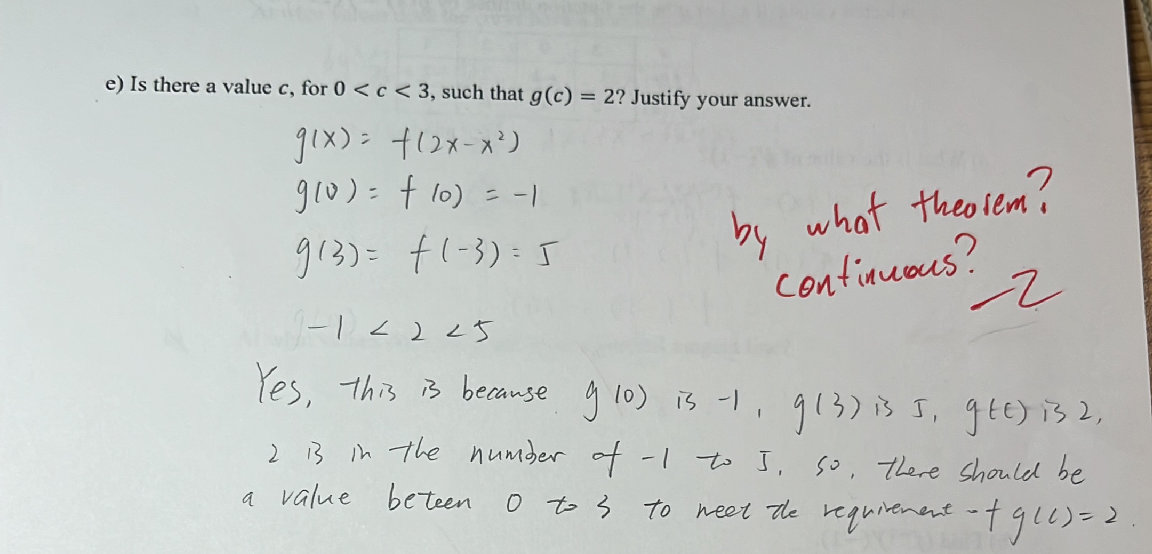 e) Is there a value c, for 0 < c < 3, such that g(c) = 2? Justify your answer.
g(x) = f(2x-x²)
g(0) = f(0) = -1
g(3) = f(-3) = 5
by what theorem?
continuous?
-2
-1 < 2 < 5
Yes, this is because g(0) is -1, g(3) is 5, g(c) is 2,
2 is in the number of -1 to 5, so, there should be
a value beteen 0 to 3 to meet the requirement of g(c)=2.